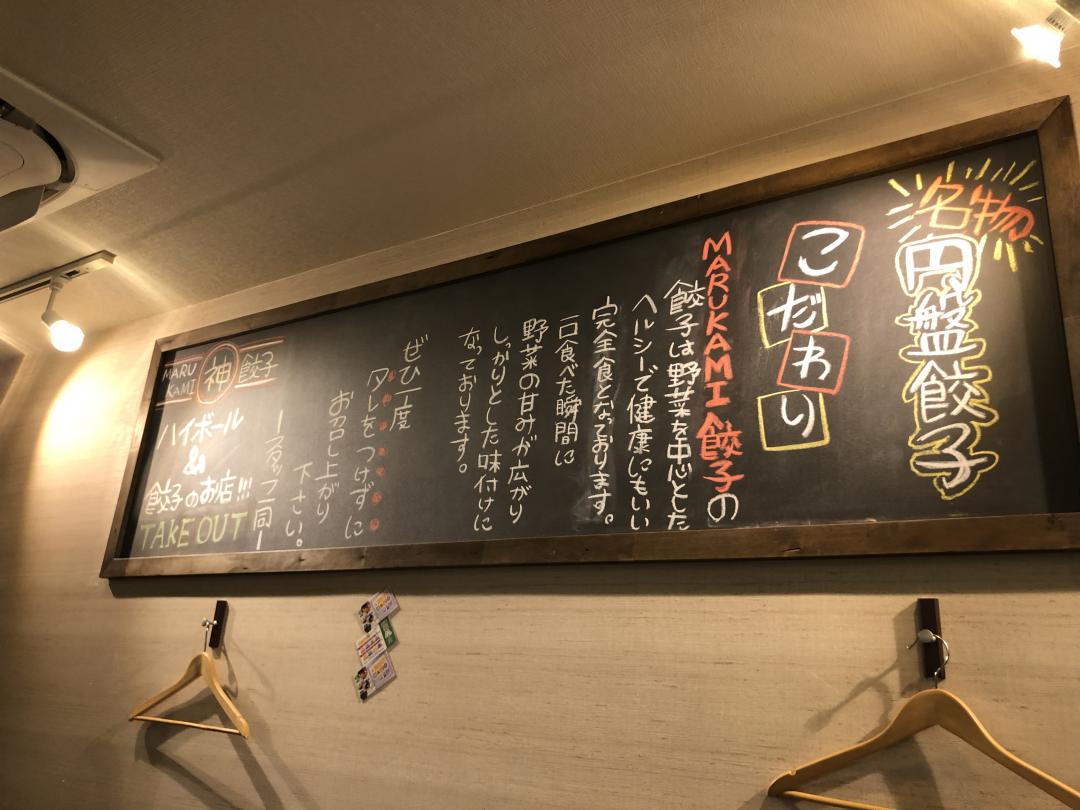 名物
円盤餃子
こだわり
MARUKAMI餃子の
餃子は野菜を中心とした
ヘルシーで健康にもいい
完全食となっております。
一口食べた瞬間に
野菜の甘みが広がり
しっかりとした味付けに
なっております。
ぜひ一度
タレをつけずに
お召し上がり
下さい。
ースタッフ一同ー
MARU
KAMI
神
餃子
ハイボール
&
餃子のお店!!!
TAKE OUT